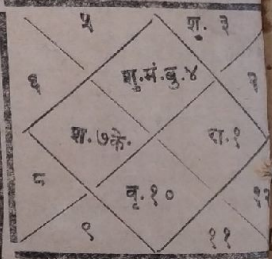 ५ शु. ३
६ शु.मं.बु.४ २
श.७के. रा.१
८ बृ.१० १२
९ ११